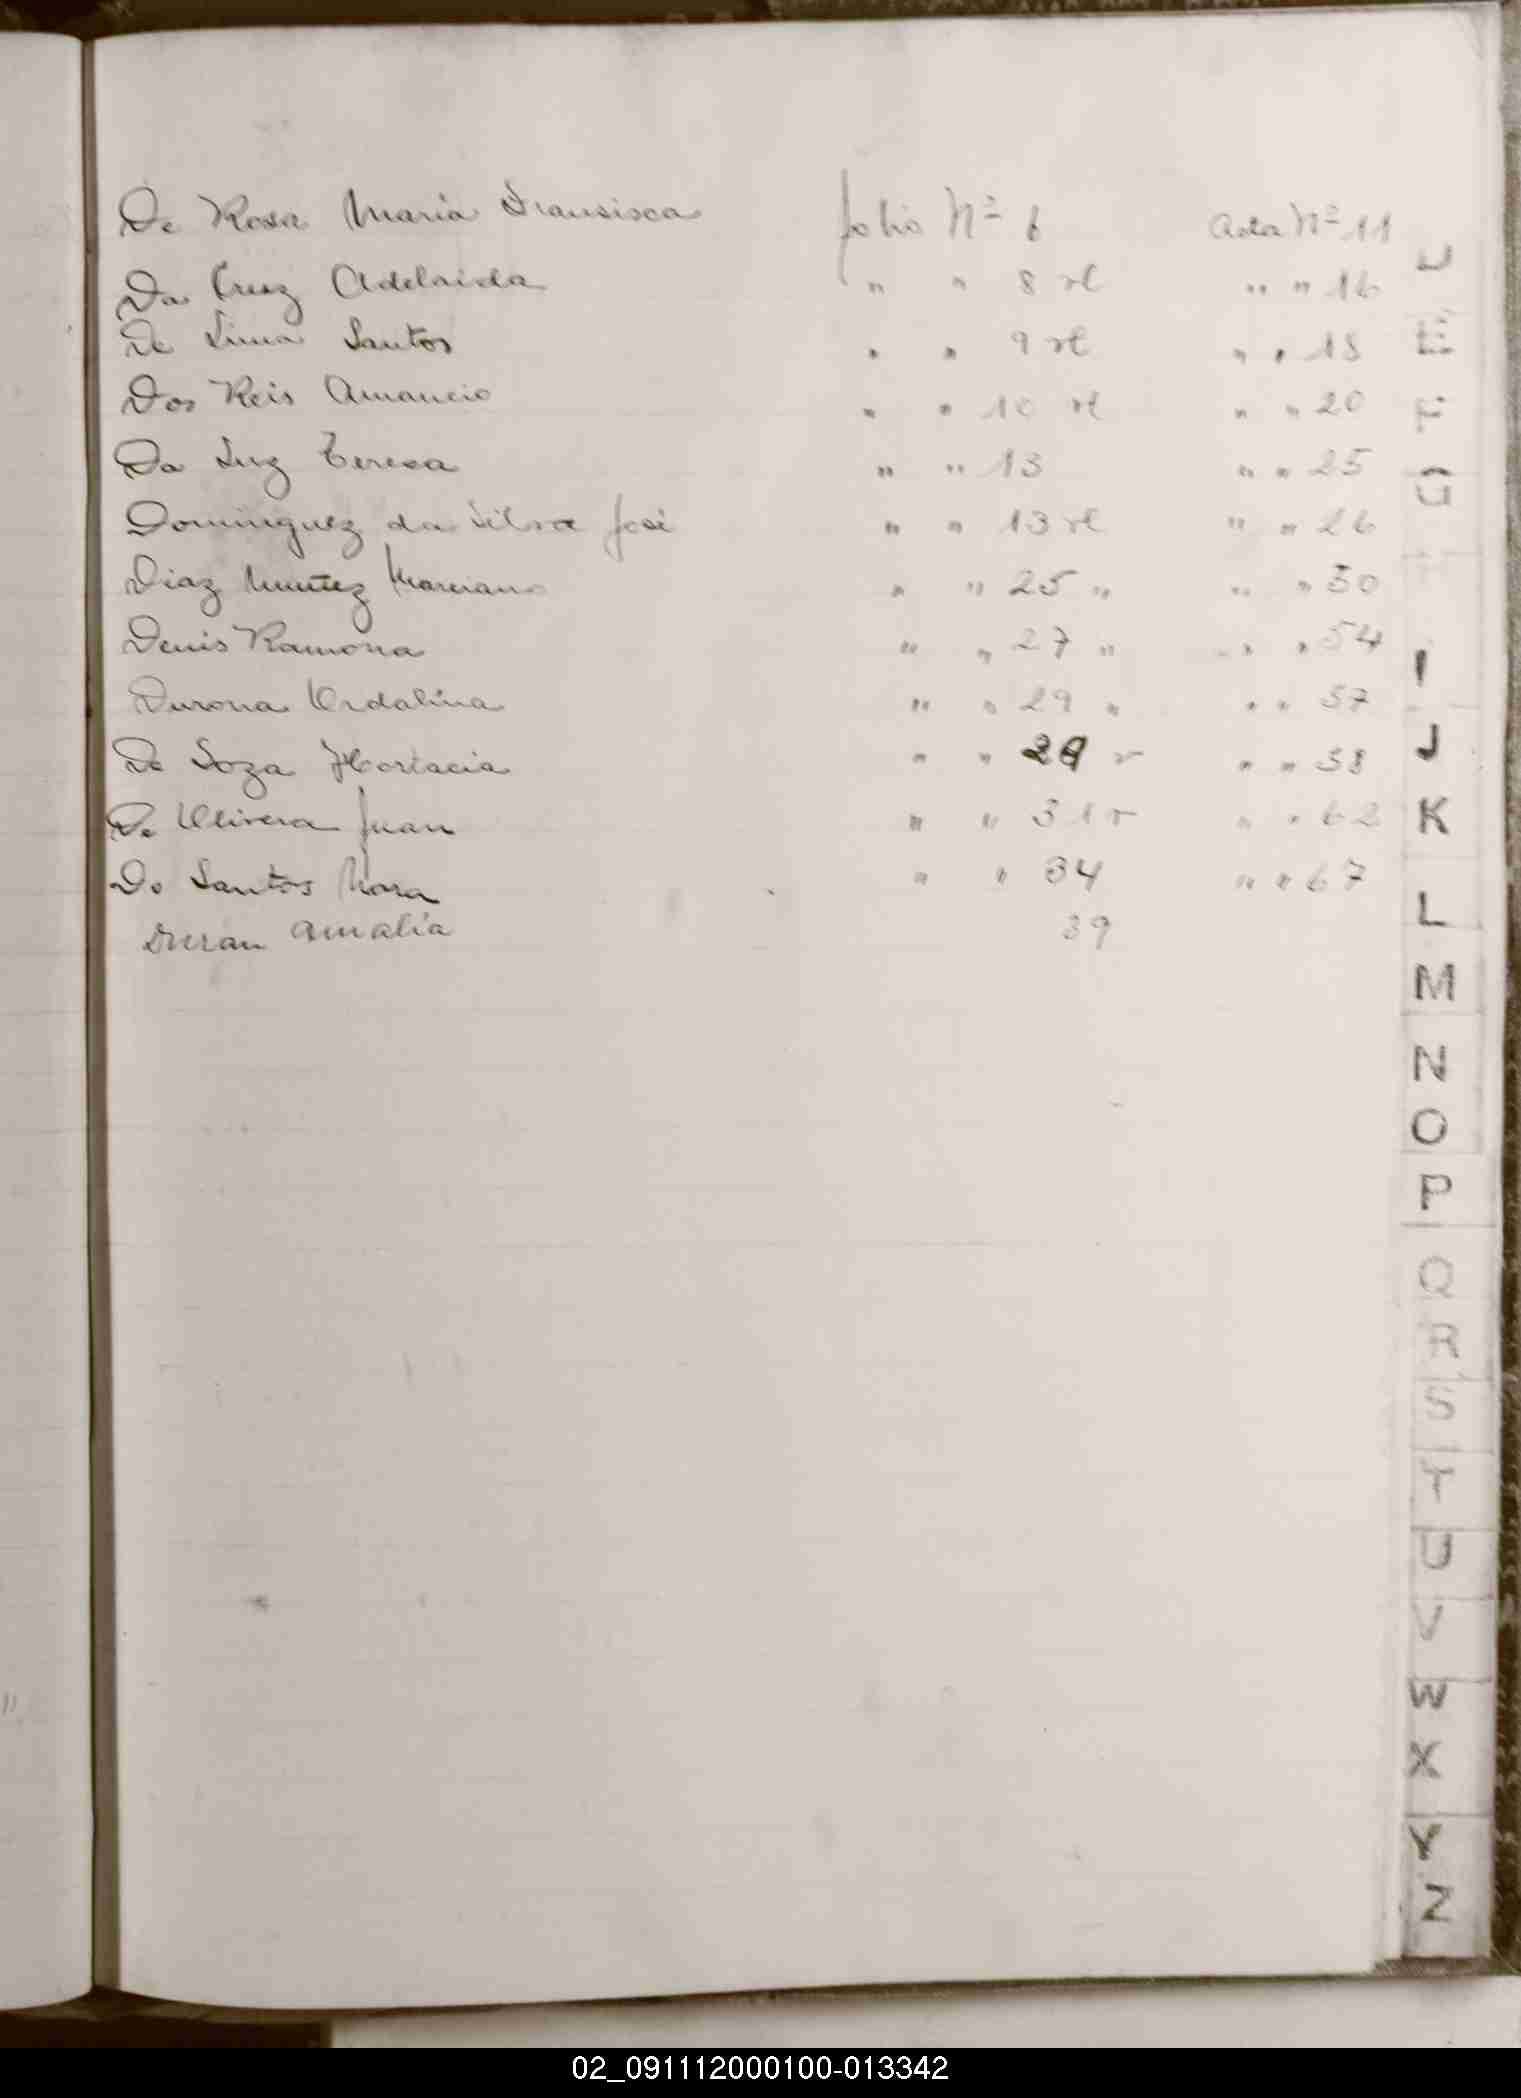 De Rosa Maria Fransisca folio Nº 6 Acta Nº 11
Da Cruz Adelaida " " 8 vt " " 16
De Lima Santos " " 9 vt " " 18
Dos Reis Amancio " " 10 vt " " 20
Da Luz Teresa " " 13 " " 25
Dominguez da Silva José " " 13 vt " " 26
Diaz Nuñez Marciano " " 25 " " " 50
Denis Ramona " " 27 " " " 54
Durona Ordalina " " 29 " " " 57
De Soza Hortacia " " 29 v " " 58
De Olivera Juan " " 31 v " " 62
Do Santos Mara " " 34 " " 67
Duran Amalia 39
D
E
F
G
I
J
K
L
M
N
O
P
Q
R
S
T
U
V
W
X
Y
Z
02_091112000100-013342